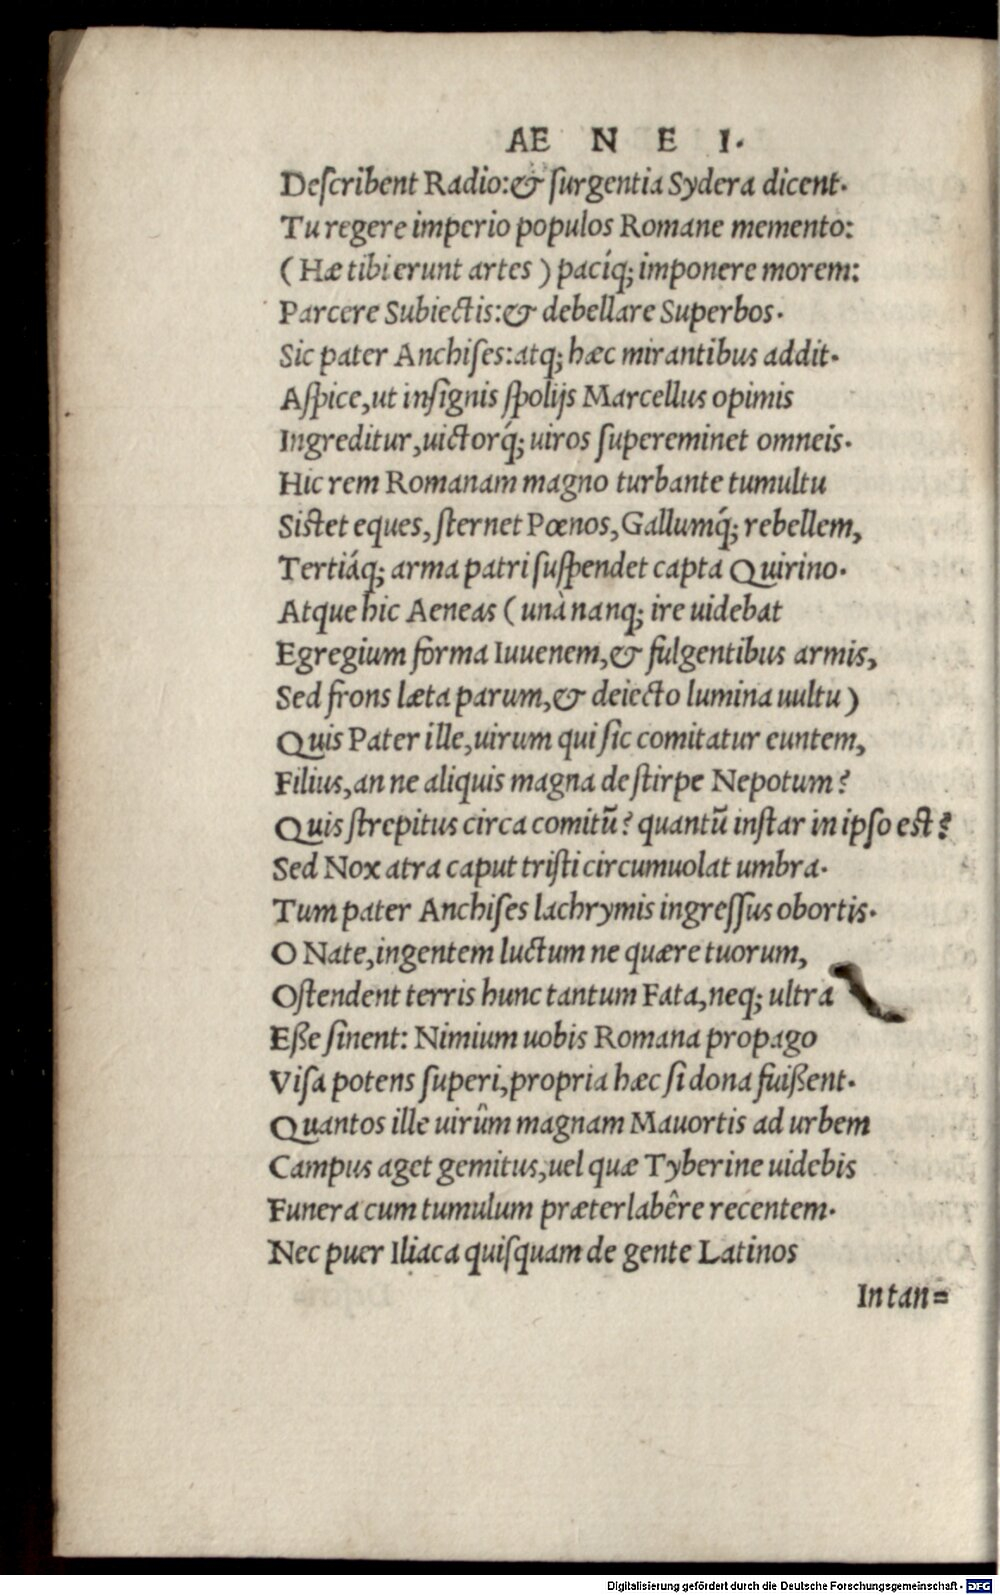 AE N E I.
Describent Radio:& surgentia Sydera dicent.
Tu regere imperio populos Romane memento:
(Hæ tibi erunt artes) pacíq; imponere morem:
Parcere Subiectis:& debellare Superbos.
Sic pater Anchises:atq; hæc mirantibus addit.
Aspice,ut insignis spolijs Marcellus opimis
Ingreditur,uictorq́; uiros supereminet omneis.
Hic rem Romanam magno turbante tumultu
Sistet eques, sternet Pœnos, Gallumq́; rebellem,
Tertiáq; arma patri suspendet capta Quirino.
Atque hic Aeneas (unà nanq; ire uidebat
Egregium forma Iuuenem,& fulgentibus armis,
Sed frons læta parum,& deiecto lumina uultu)
Quis Pater ille,uirum qui sic comitatur euntem,
Filius,an ne aliquis magna de stirpe Nepotum?
Quis strepitus circa comitū? quantū instar in ipso est?
Sed Nox atra caput tristi circumuolat umbra.
Tum pater Anchises lachrymis ingressus obortis.
O Nate,ingentem luctum ne quære tuorum,
Ostendent terris hunc tantum Fata,neq; ultra
Eße sinent: Nimium uobis Romana propago
Visa potens superi,propria hæc si dona fuißent.
Quantos ille uirûm magnam Mauortis ad urbem
Campus aget gemitus,uel quæ Tyberine uidebis
Funera cum tumulum præterlabêre recentem.
Nec puer Iliaca quisquam de gente Latinos
In tan=
Digitalisierung gefördert durch die Deutsche Forschungsgemeinschaft - DFG